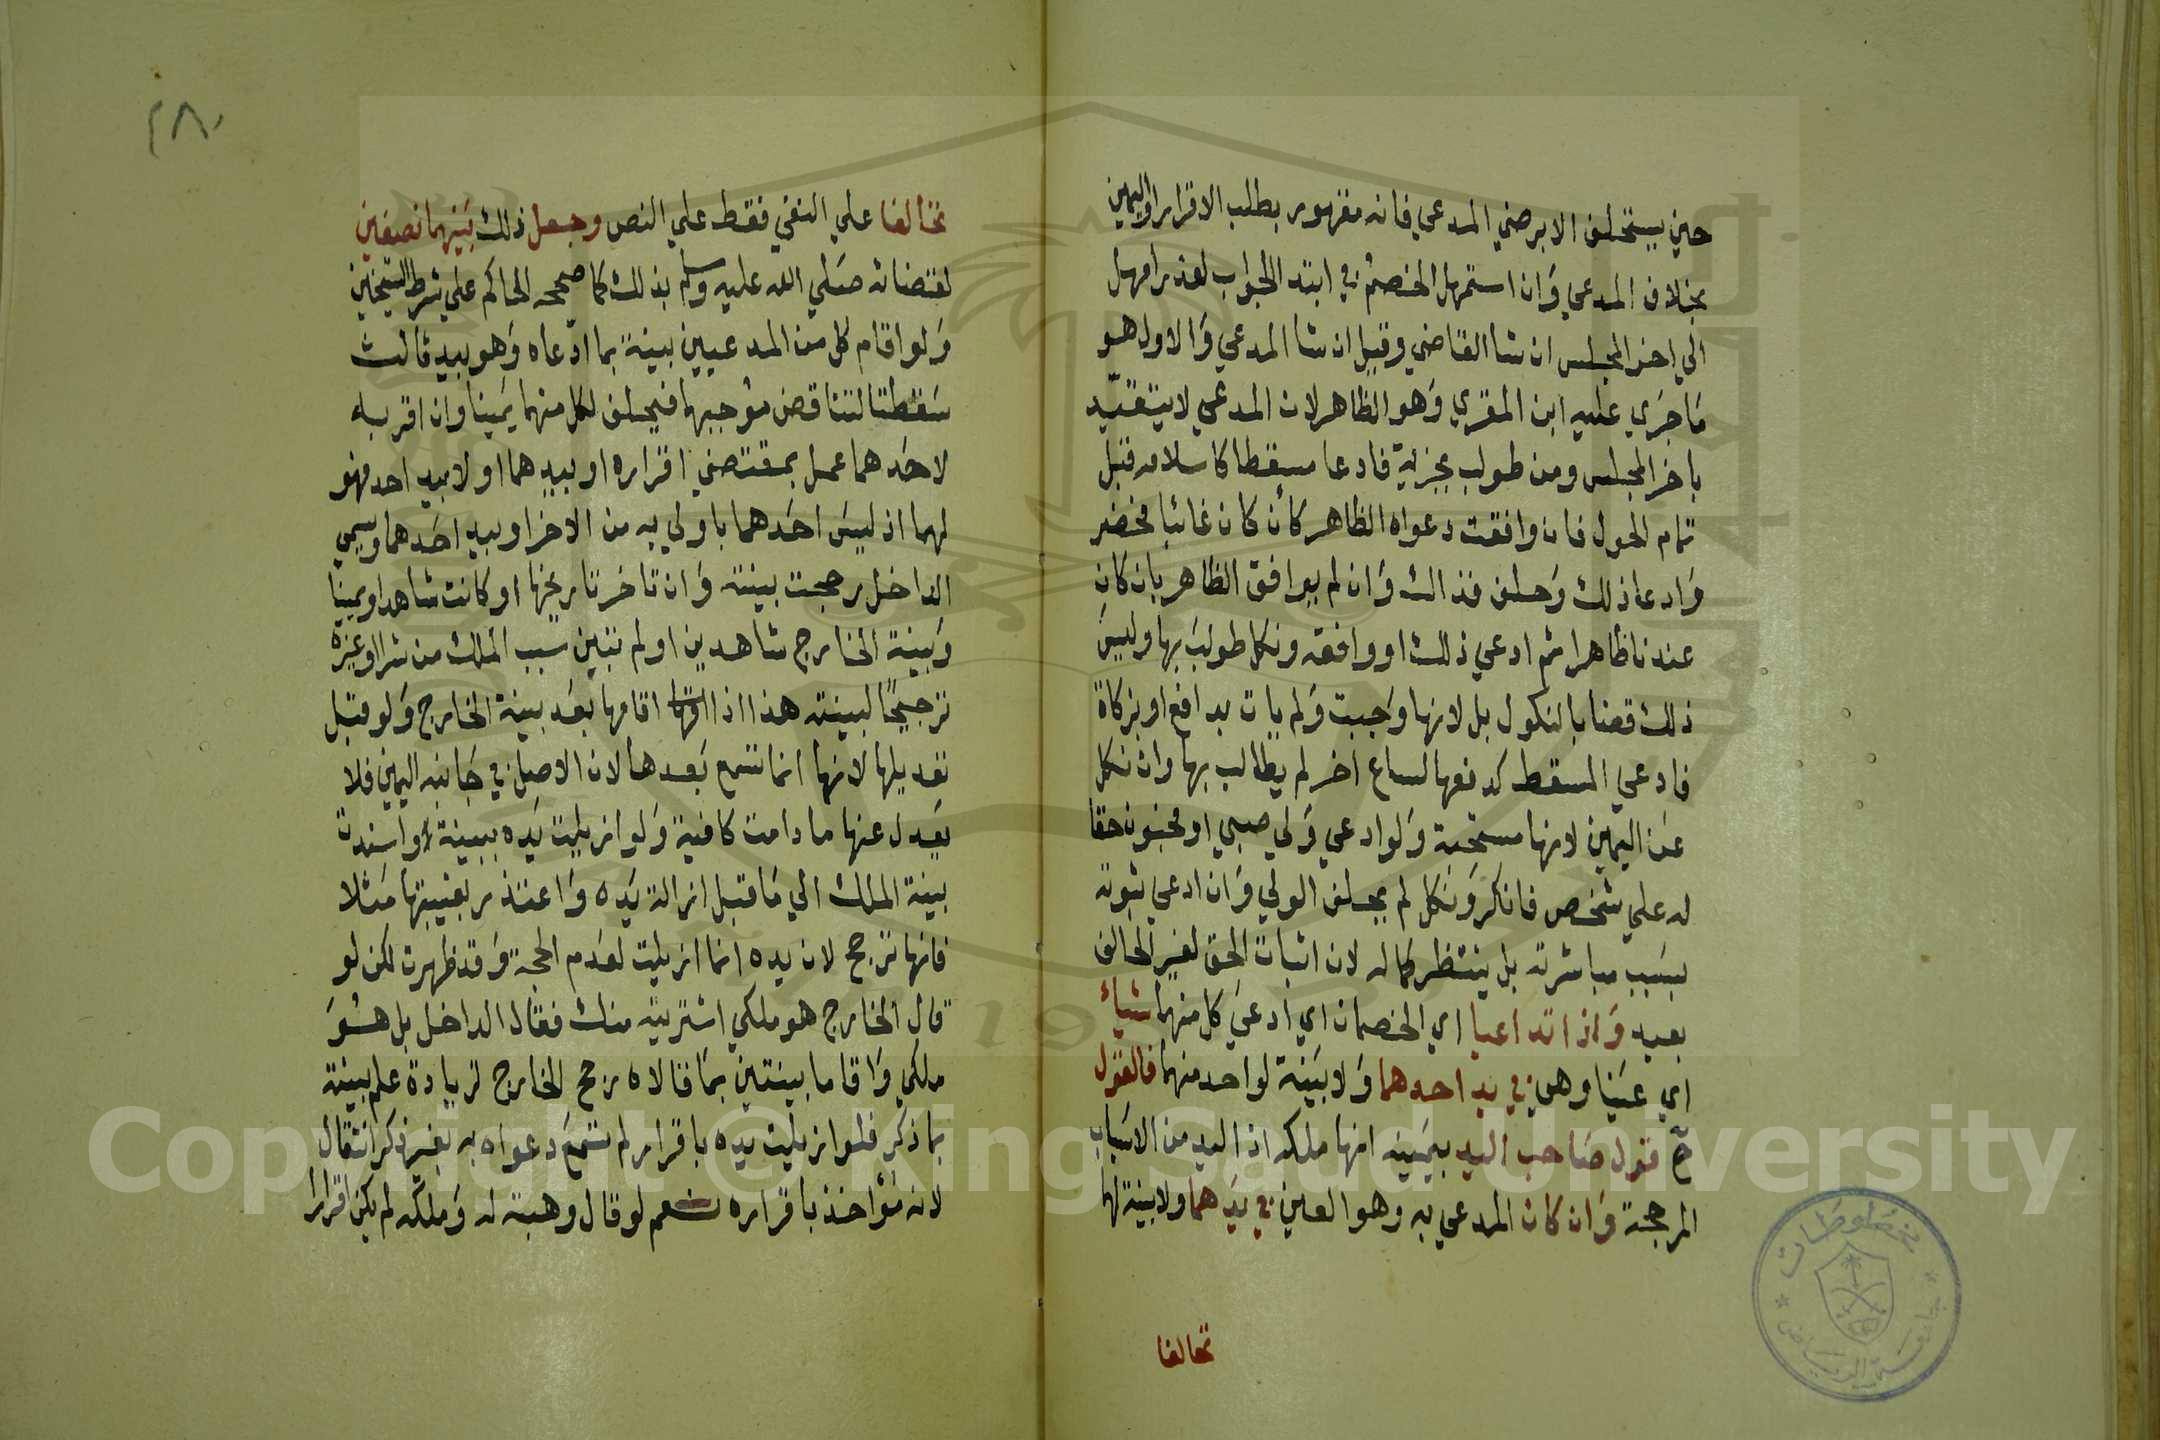 حين يستحلف الا برضي المدعي فانه مقهور بطلب الاقرار او اليمين
بخلاف المدعي وان استمهل الخصم في ابتد الجواب لعذر امهل
الي اخر المجلس ان شا القاضي وقيل ان شا المدعي والاول هو
ما جري عليه ابن المقري وهو الظاهر لان المدعي لا يتقيد
باخر المجلس ومن طولب بجزية فادعا مسقطا كاسلامه قبل
تمام الحول فان وافقت دعواه الظاهر كأن كان غائبا فحضر
وادعا ذلك وحلف فذاك وان لم يوافق الظاهر بان كان
عندنا ظاهرا ثم ادعي ذلك او وافقه ونكل طولب بها وليس
ذلك قضا بالنكول بل لانها وجبت ولم يات بدافع او بزكاة
فادعي المسقط كدفعها لساع اخر لم يطالب بها وان نكل
عن اليمين لانها مستحبة ولو ادعي ولي صبي او مجنون حقا
له علي شخص فانكر ونكل لم يحلف الولي وان ادعي ثبوته
بسبب مباشرته بل ينتظر كماله لان اثبات الحق لغير الحالف
بعيد واذا تداعيا اي الخصمان اي ادعي كل منهما شياء
اي عينا وهي في يد احدهما ولا بينة لواحد منهما فالقول
قول صاحب اليد بيمينه انها ملكه اذ اليد من الاسباب
المرجحة وان كان المدعي به وهو العين في يدهما ولا بينة لهما
تحالفا
٢٨٠
تحالفا علي النفي فقط علي النص وجعل ذلك بينهما نصفين
لقضائه صلي الله عليه وسلم بذلك كما صححه الحاكم علي شرط الشيخين
ولو اقام كل من المدعيين بينة بما ادعاه وهو بيد ثالث
سقطتا لتناقض موجبهما فيحلف لكل منهما يمينا وان اقر به
لاحدهما عمل بمقتضي اقراره او بيدهما او لا بيد احد فهو
لهما اذ ليس احدهما باولي به من الاخر او بيد احدهما ويسمي
الداخل رجحت بينته وان تاخر تاريخها او كانت شاهدا ويمينا
وبينة الخارج شاهدين او لم تبين سبب الملك من شرا او غيره
ترجيحا لبينته هذا اذا اقامها بعد بينة الخارج ولو قبل
تعديلها لانها انما تسمع بعدها لان الاصل في جانبه اليمين فلا
يعدل عنها ما دامت كافية ولو ازيلت يده ببينة واسندت
بينة الملك الي ما قبل ازالة يده واعتذر بغيبتها مثلا
فانها ترجح لان يده انما ازيلت لعدم الحجة وقد ظهرت لكن لو
قال الخارج هو ملكي اشتريته منك فقال الداخل بل هو
ملكي واقاما بينتين بما قالاه رجح الخارج لزيادة علم بينته
بما ذكر فلو ازيلت يده باقرار لم تسمع دعواه به بغير ذكر انتقال
لانه مؤاخذ باقراره نعم لو قال وهبته له وملكه لم يكن اقرارا
مخطوطات
جامعة الرياض
Copyright © King Saud University